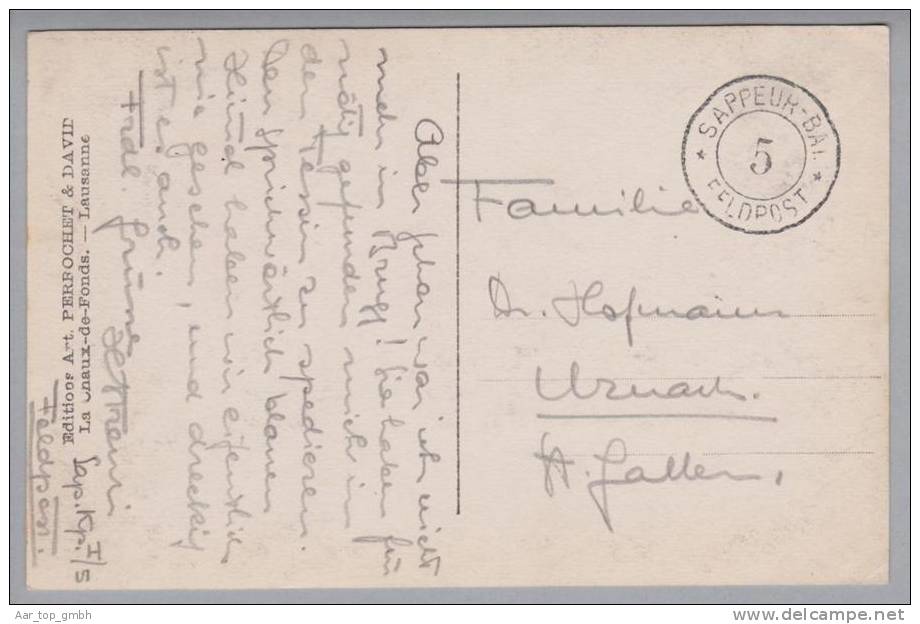 Aber schon war ich nicht
mehr in Brugg! Sie haben für
nötig gefunden mich in
den Tessin zu spedieren.
Den sprichwörtlich blauen
Himmel haben wir eigentlich
nie gesehen, und dreckig
ist es auch.
Frdl. Grüsse
Sap. Kp. I/5
Feldpost.
Editions Art. PERROCHET & DAVID
La Chaux-de-Fonds. — Lausanne
SAPPEUR-BAT.
5
FELDPOST
Familie
Dr. Hofmann
Uznach.
St. Gallen.
Aar_top_gmbh
www.delcampe.net